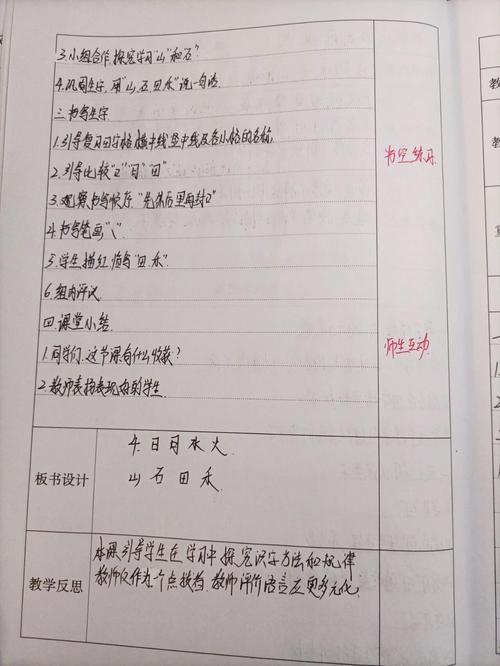 3.小组合作,探究学习"山"和"石"。
4.巩固生字,用"山、石、田、禾"说一句话
三.书写生字
1.引导复习田字格横中线竖中线及各小格的名称
书空练习
2.引导比较"口""日""田"
3.观察书写顺序"先外后里再封口"
4.书写笔画"㇏"
5.学生描红,临写"田、禾"
6.组内评议
四.课堂小结
1.同学们,这节课有什么收获?
师生互动
2.教师表扬表现好的学生
板书设计
4.日月水火
山石田禾
教学反思
本课引导学生在学习中探究识字方法和规律
教师仅作为一个点拨者,教师评价语言应更多元化